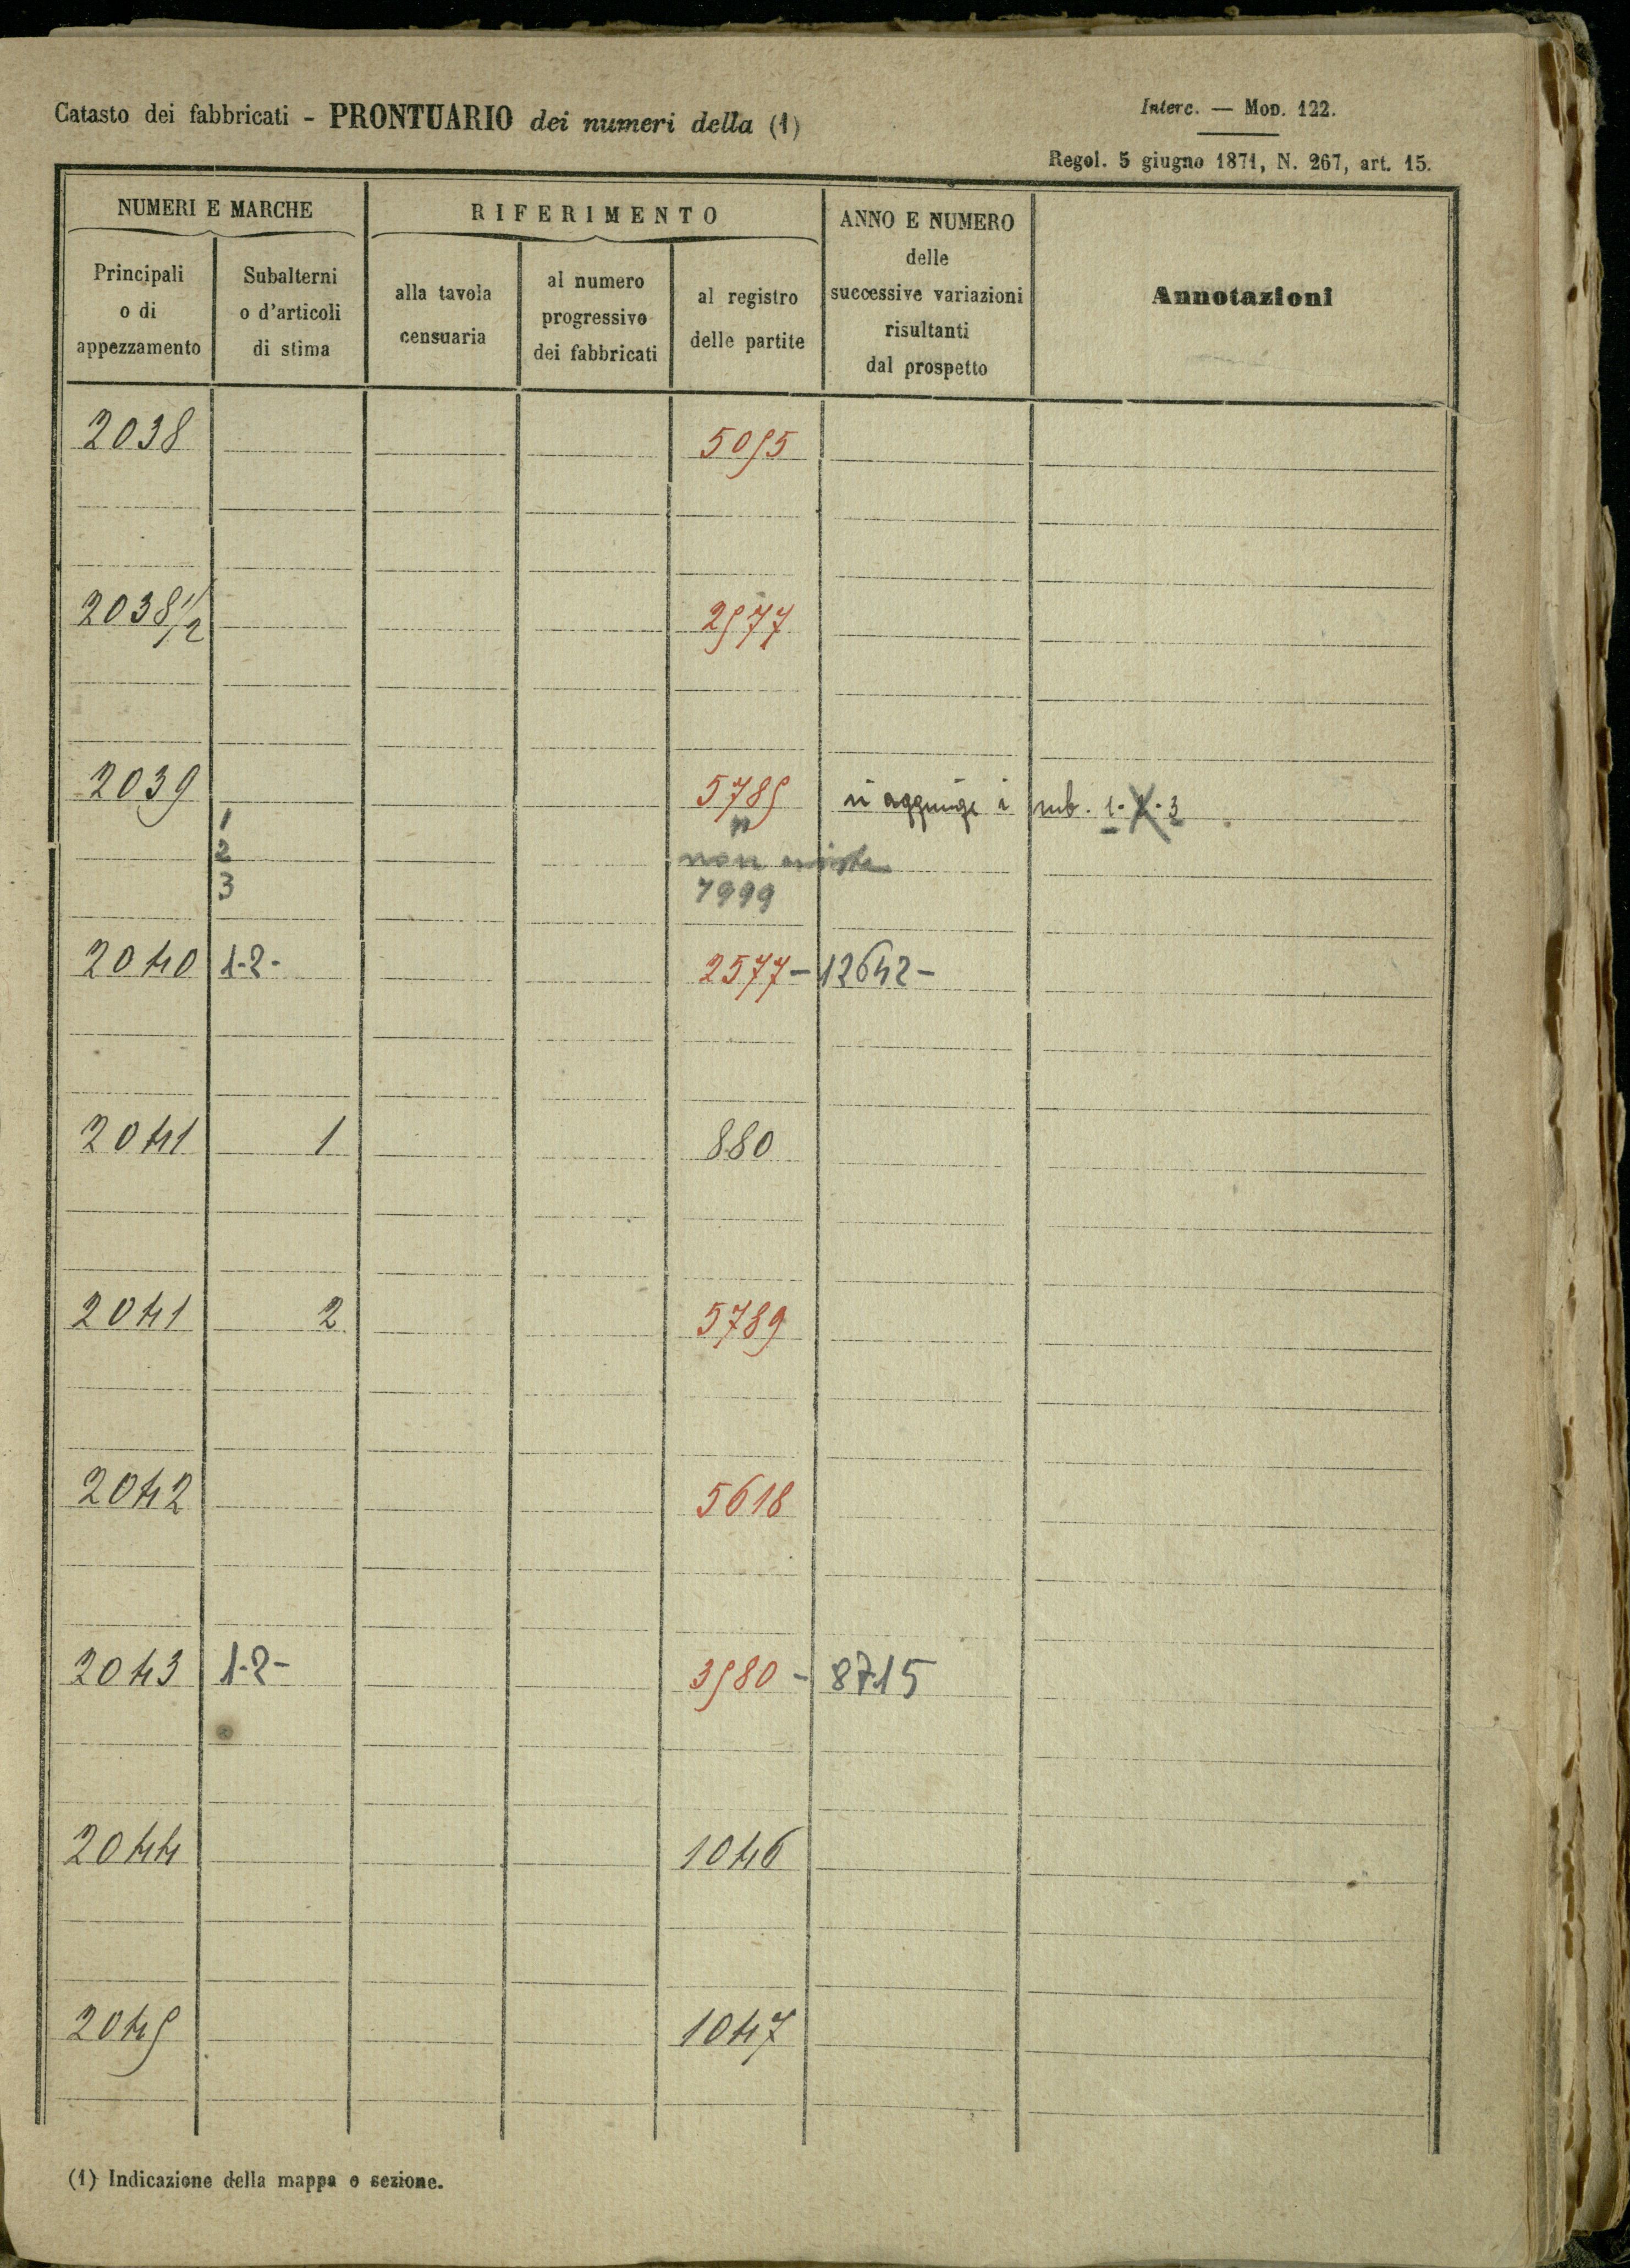 Catasto dei fabbricati - PRONTUARIO dei numeri della (1)
Interc. — Mod. 122.
Regol. 5 giugno 1871, N. 267, art. 15.
NUMERI E MARCHE
RIFERIMENTO
ANNO E NUMERO
delle
successive variazioni
risultanti
dal prospetto
Annotazioni
Principali
o di
appezzamento
Subalterni
o d'articoli
di stima
alla tavola
censuaria
al numero
progressivo
dei fabbricati
al registro
delle partite
2038 5055
2038 1/2 2577
2039 5785 si aggiunge i sub. 1-2-3
1 "
2 non esiste
3 7999
2040 1-2- 2577 - 12642 -
2041 1 880
2041 2 5789
2042 5618
2043 1-2- 3580 - 8715
2044 1046
2045 1047
(1) Indicazione della mappa o sezione.